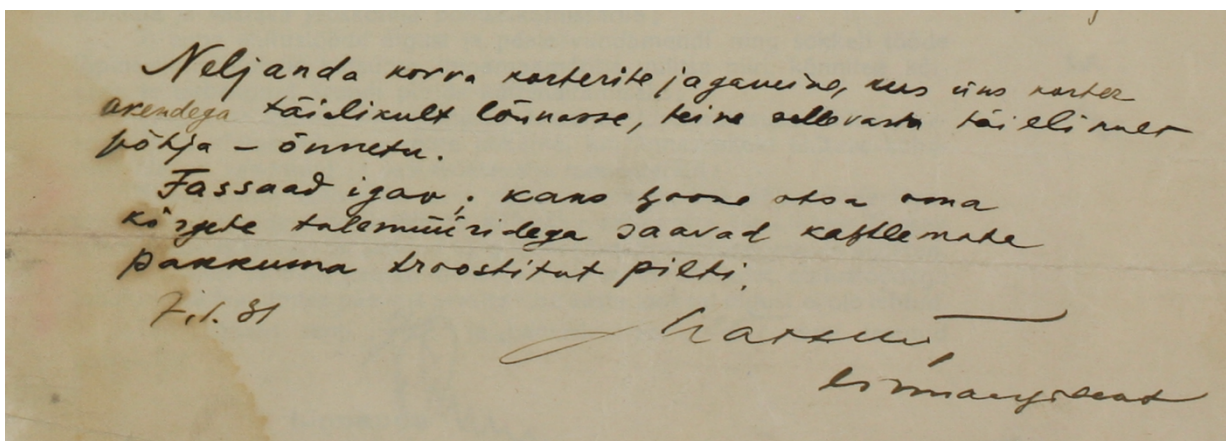 Neljanda korra korterite jagamine, kus üks korter
akendega täielikult lõunasse, teine sellevastu täielikult
põhja – õnnetu.
Fassaad igav; kaks hoone otsa oma
kõrgete tulemüüridega saavad kahtlemata
pakkuma troostitut pilti.
7.1.31
linnaarhitekt